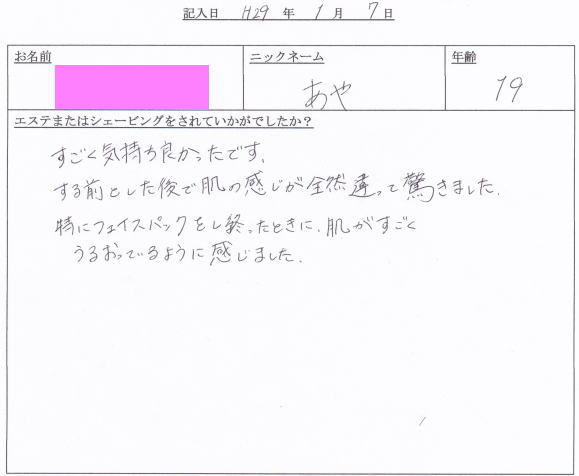 記入日 H29 年 1 月 7 日
お名前 ニックネーム 年齢
あや 19
エステまたはシェービングをされていかがでしたか？
すごく気持ち良かったです.
する前とした後で肌の感じが全然違って驚きました.
特にフェイスパックをし終ったときに、肌がすごく
うるおっているように感じました.